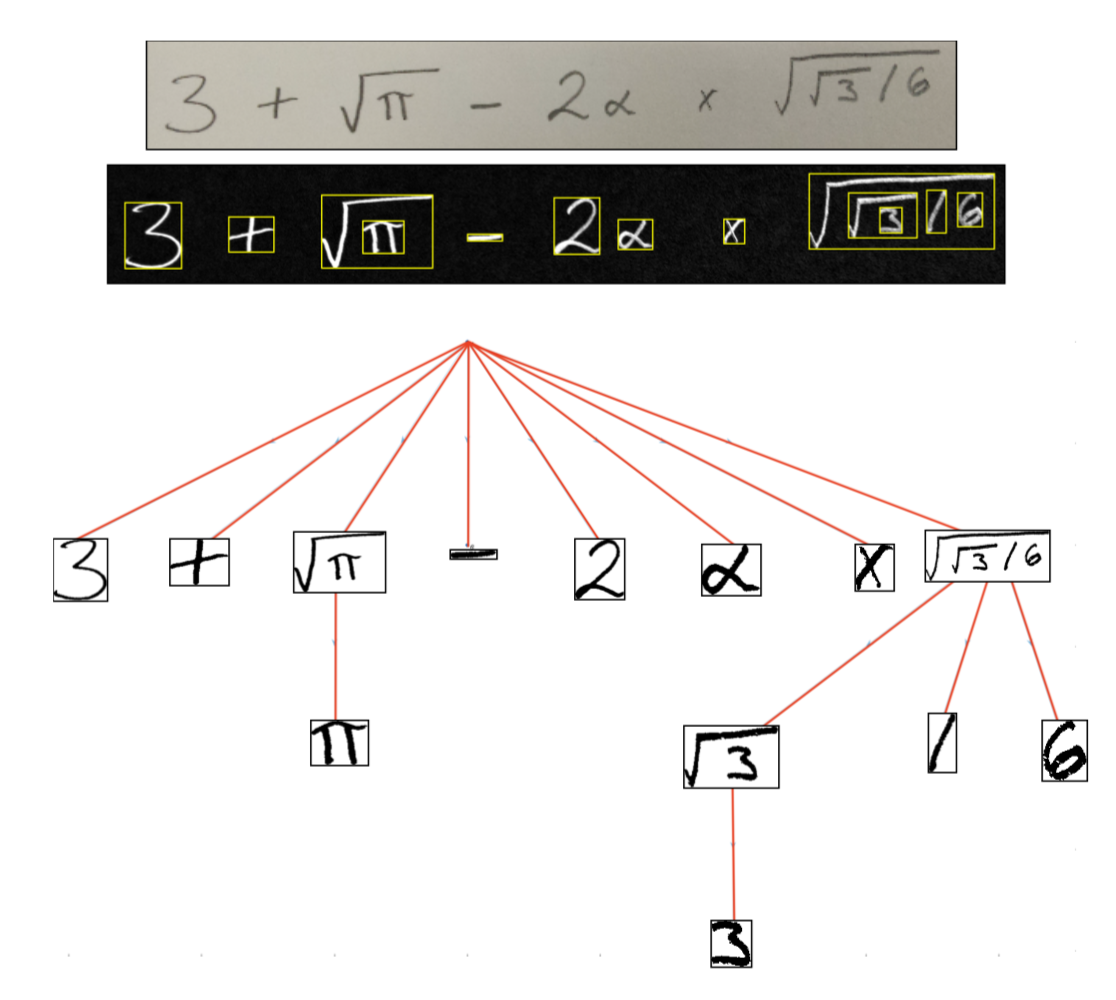 3 + √π - 2α × √(√3/6)
3 + √π - 2α × √(√3/6)
3 + √π - 2 α × √(√3/6)
π √3 / 6
3